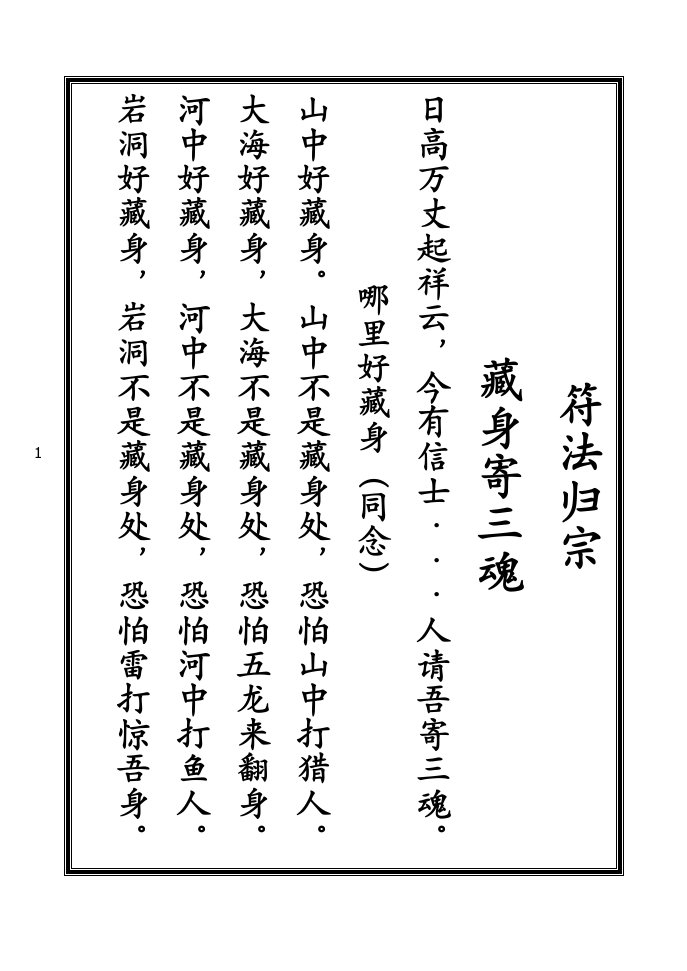 符法归宗
藏身寄三魂
日高万丈起祥云，今有信士...人请吾寄三魂。
哪里好藏身（同念）
山中好藏身。山中不是藏身处，恐怕山中打猎人。
大海好藏身，大海不是藏身处，恐怕五龙来翻身。
河中好藏身，河中不是藏身处，恐怕河中打鱼人。
岩洞好藏身，岩洞不是藏身处，恐怕雷打惊吾身。
1